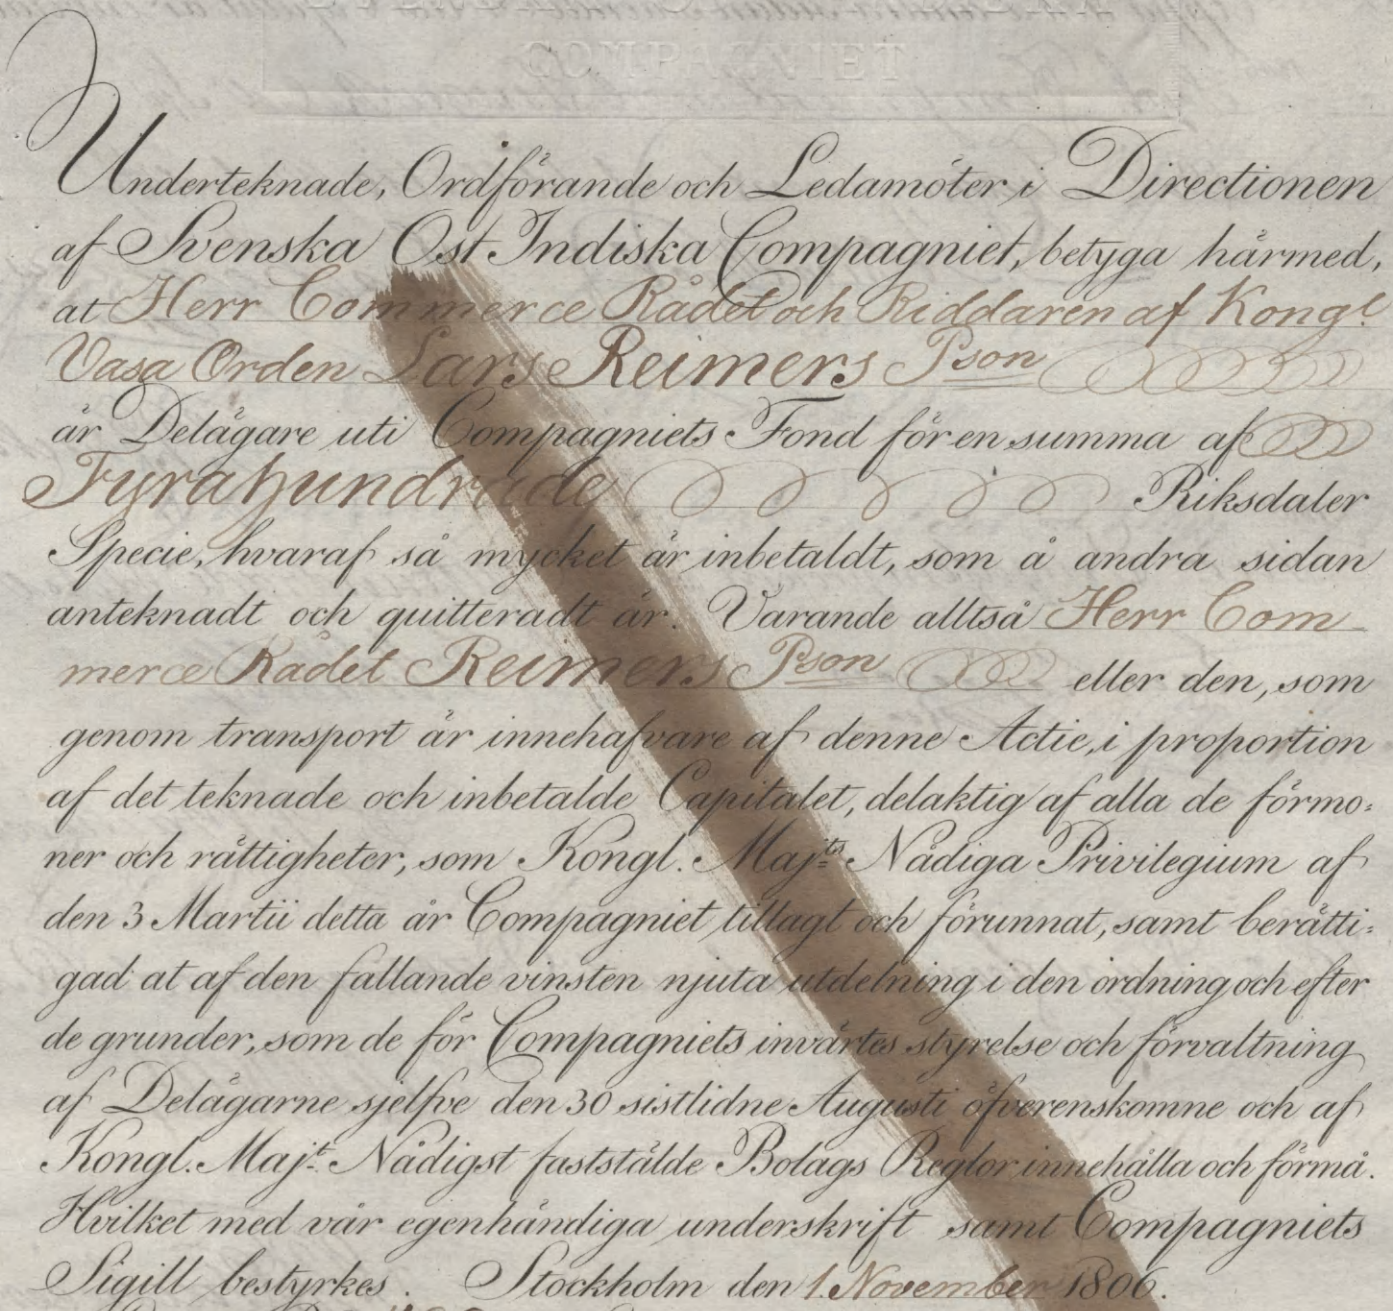 COMPAGNIET
Underteknade, Ordförande och Ledamöter i Directionen
af Svenska Ost Indiska Compagniet, betyga härmed,
at Herr Commerce Rådet och Riddaren af Kongl.
Vasa Orden Lars Reimers Pson
är Delägare uti Compagniets Fond för en summa af
Fyrahundrade Riksdaler
Specie, hvaraf så mycket är inbetaldt, som å andra sidan
anteknadt och quitteradt är. Varande alltså Herr Com
merce Rådet Reimers Pson eller den, som
genom transport är innehafvare af denne Actie, i proportion
af det teknade och inbetalde Capitalet, delaktig af alla de förmo:
ner och rättigheter, som Kongl. Maj:ts Nådiga Privilegium af
den 3 Martii detta år Compagniet tillagt och förunnat, samt berätti:
gad at af den fallande vinsten njuta utdelning i den ordning och efter
de grunder, som de för Compagniets invärtes styrelse och förvaltning
af Delägarne sjelfve den 30 sistlidne Augusti öfverenskomne och af
Kongl. Maj:t Nådigst faststälde Bolags Reglor innehålla och förmå.
Hvilket med vår egenhändiga underskrift samt Compagniets
Sigill bestyrkes. Stockholm den 1 November 1806.